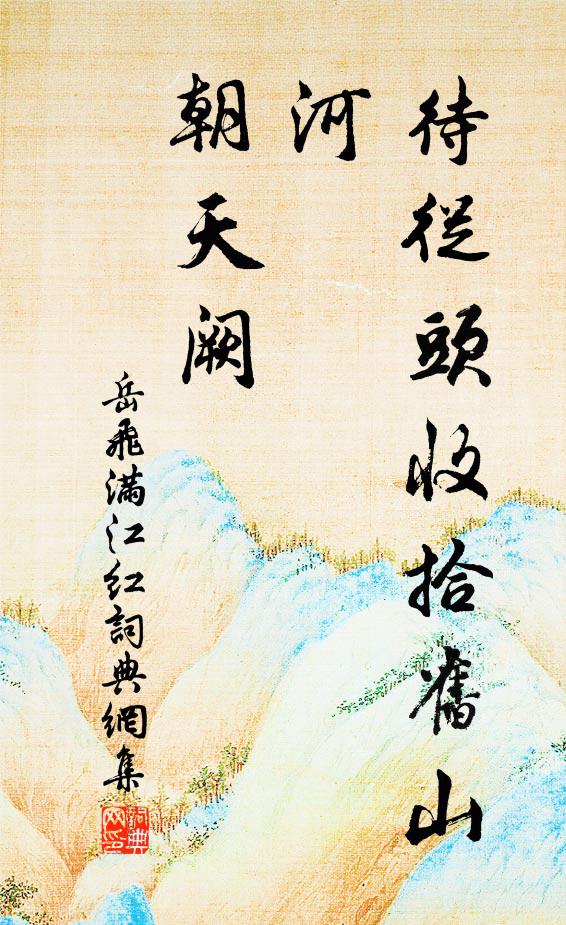 待從頭收拾舊山
河
朝天闕
岳飛滿江紅詞典網集
詞典
网印